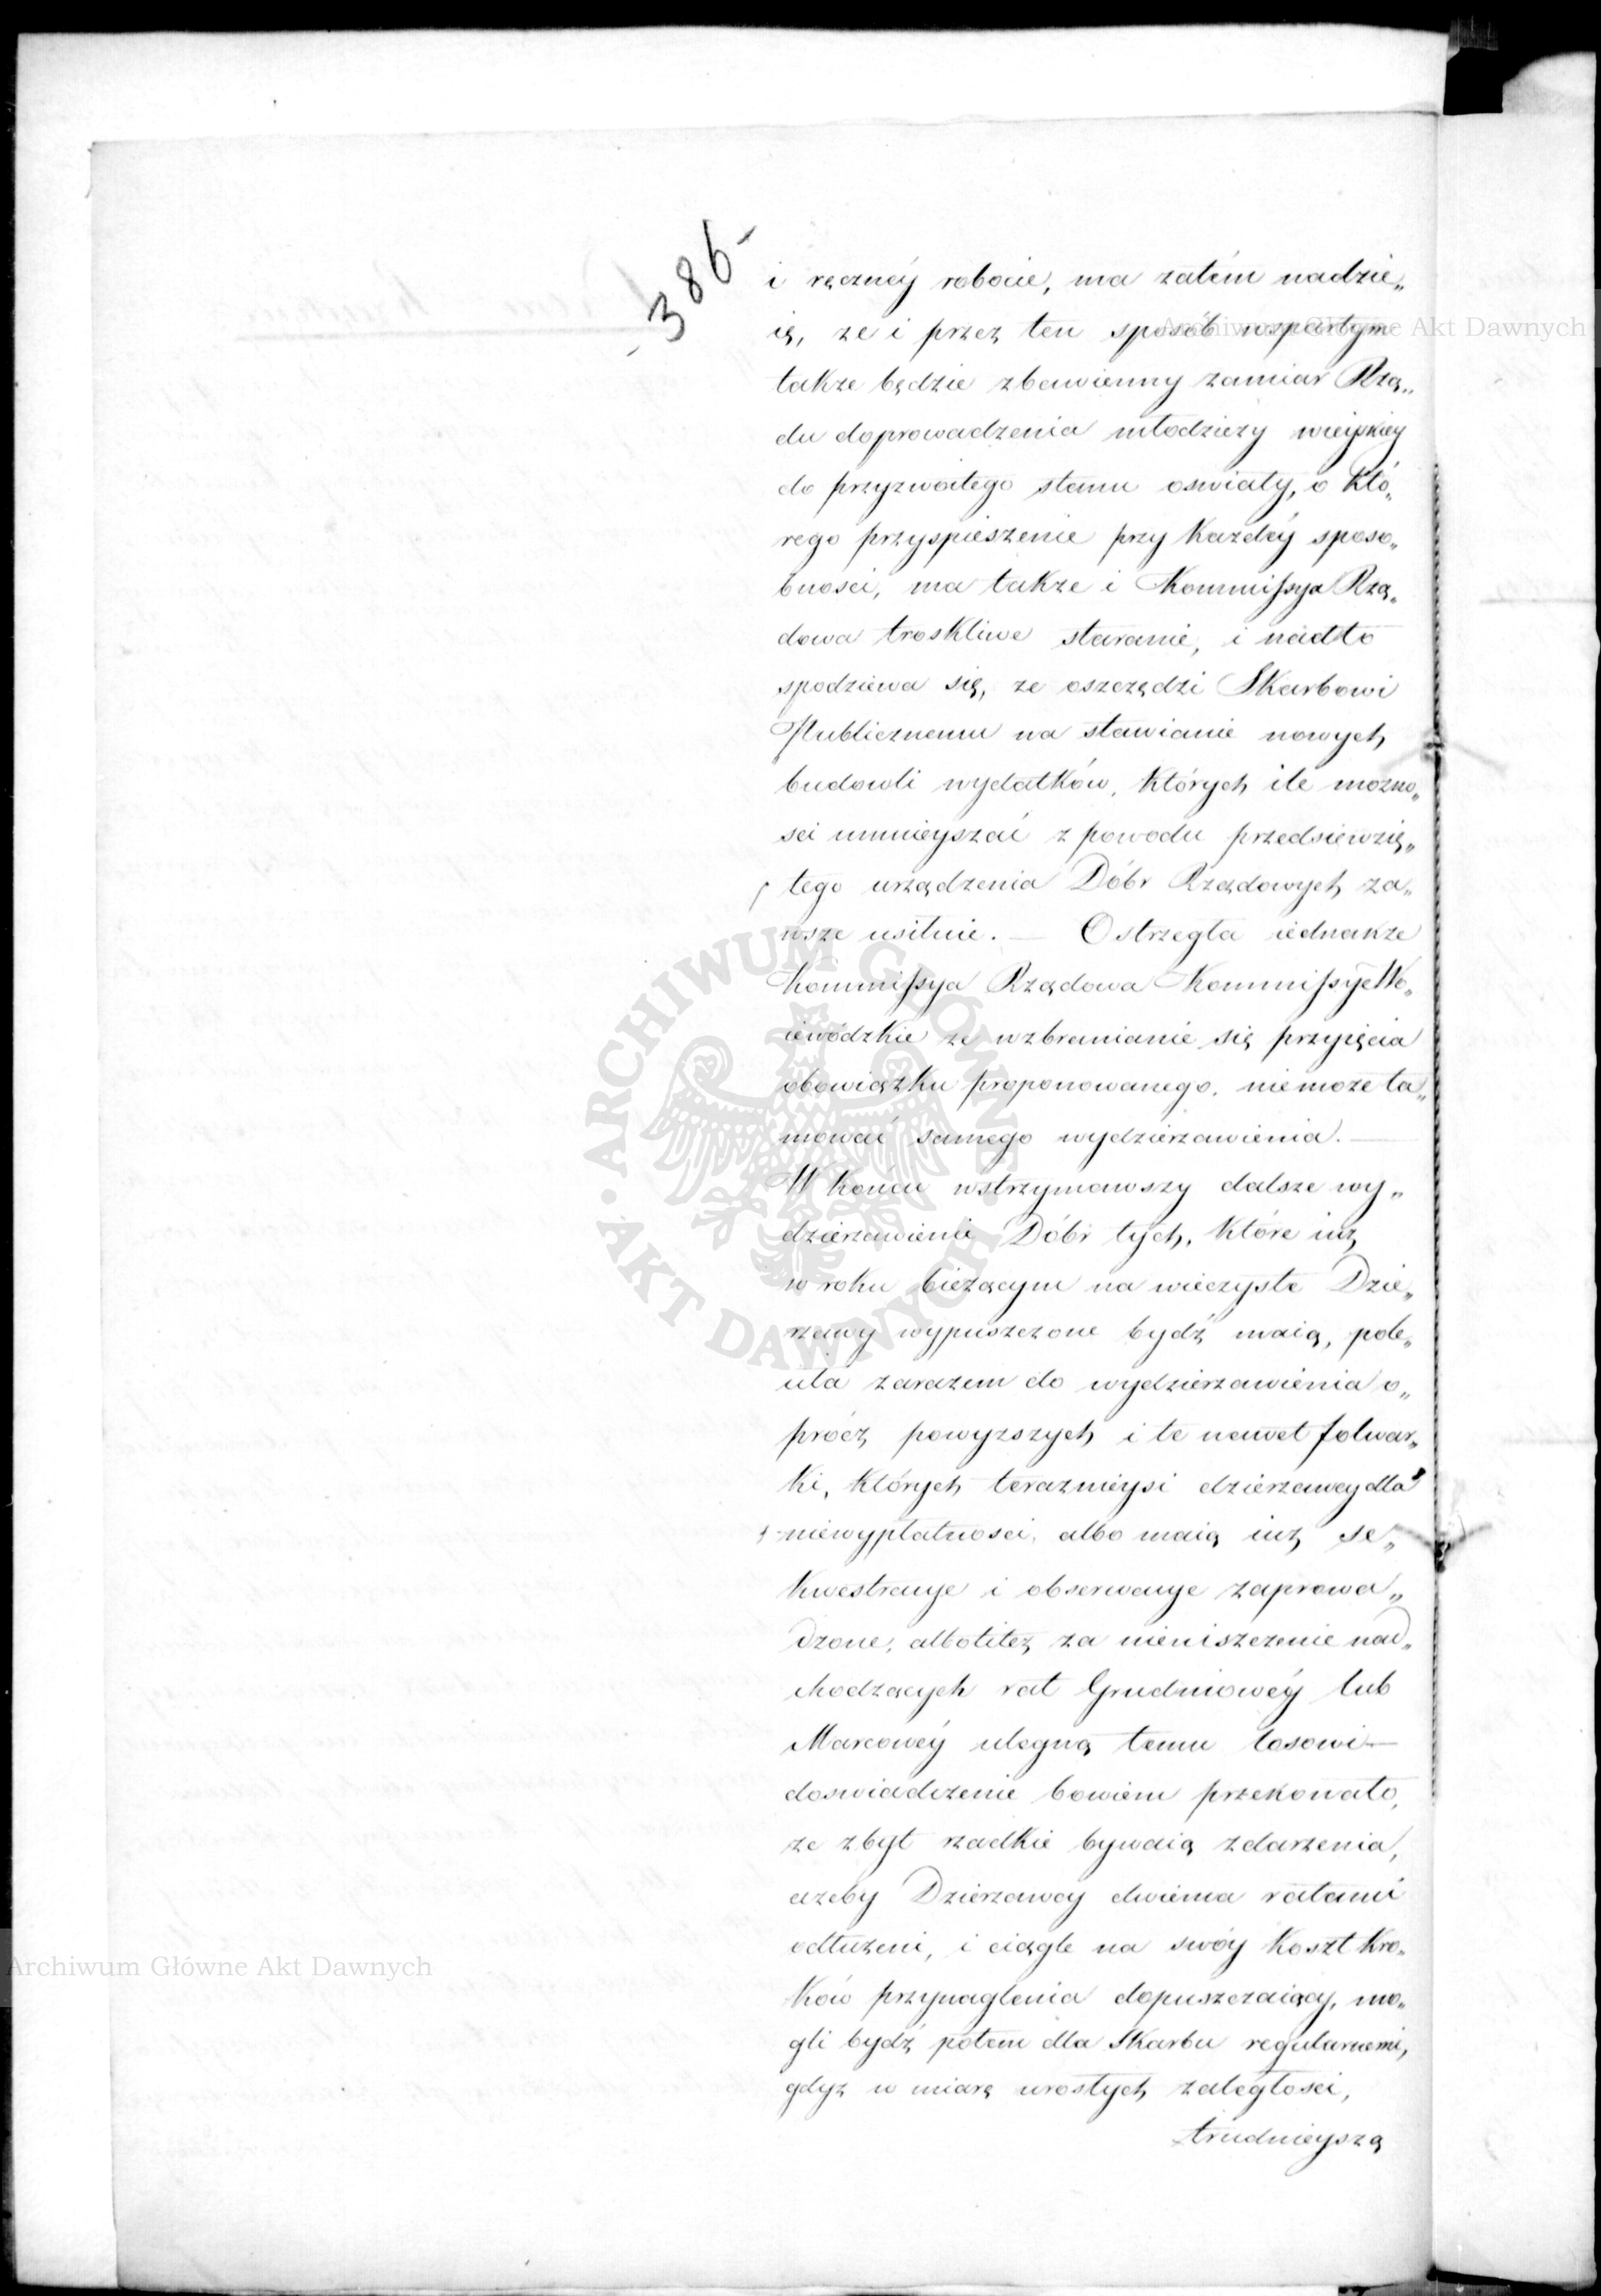 - 386 -
i ręcznéy robocie, ma zatém nadzie„
ię, ze i przez ten sposób wspartym
takze będzie zbawienny zamiar Rzą„
du doprowadzenia młodziezy wieyskiey
do przyzwoitego stanu oswiaty, o któ„
rego przyspieszenie przy kazdéy sposo„
bnosci, ma takze i Kommissya Rzą„
dowa troskliwe staranie, i nadto
spodziewa się, ze oszczędzi Skarbowi
Publicznemu na stawianie nowych
budowli wydatków, których ile mozno„
sci umnieyszać z powodu przedsięwzię„
tego urządzenia Dóbr Rządowych za„
wsze usilnie. — Ostrzegła iednakze
Kommissya Rządowa Kommissye Wo„
iewódzkie ze wzbranianie się przyięcia
obowiązku proponowanego, nie moze ta„
mować samego wydzierzawienia. —
W końcu wstrzymawszy dalsze wy„
dzierzawienie Dóbr tych, które iuz
w roku biezącym na wieczyste Dzie„
rzawy wypuszczone bydź maią, pole„
ciła zarazem do wydzierzawienia o„
prócz powyzszych i te nawet folwar„
ki, których teraznieysi dzierzawcy dla
niewypłatnosci, albo maią iuz se„
kwestracye i obserwacye zaprowa„
dzone, albo litez za nieniszczenie nad„
chodzących rat Grudniowéy lub
Marcowéy ulegną temu losowi —
doswiadczenie bowiem przekonało,
ze zbyt rzadkie bywaią zdarzenia,
azeby Dzierzawcy dwiema ratami
odłuzeni, i ciągle na swóy koszt kro„
ków przynaglenia dopuszczaiący, mo„
gli bydź potem dla Skarbu regularnemi,
gdyz w miarę urosłych zaległosci,
trudnieyszą
Archiwum Główne Akt Dawnych
Archiwum Główne Akt Dawnych
ARCHIWUM GŁÓWNE AKT DAWNYCH